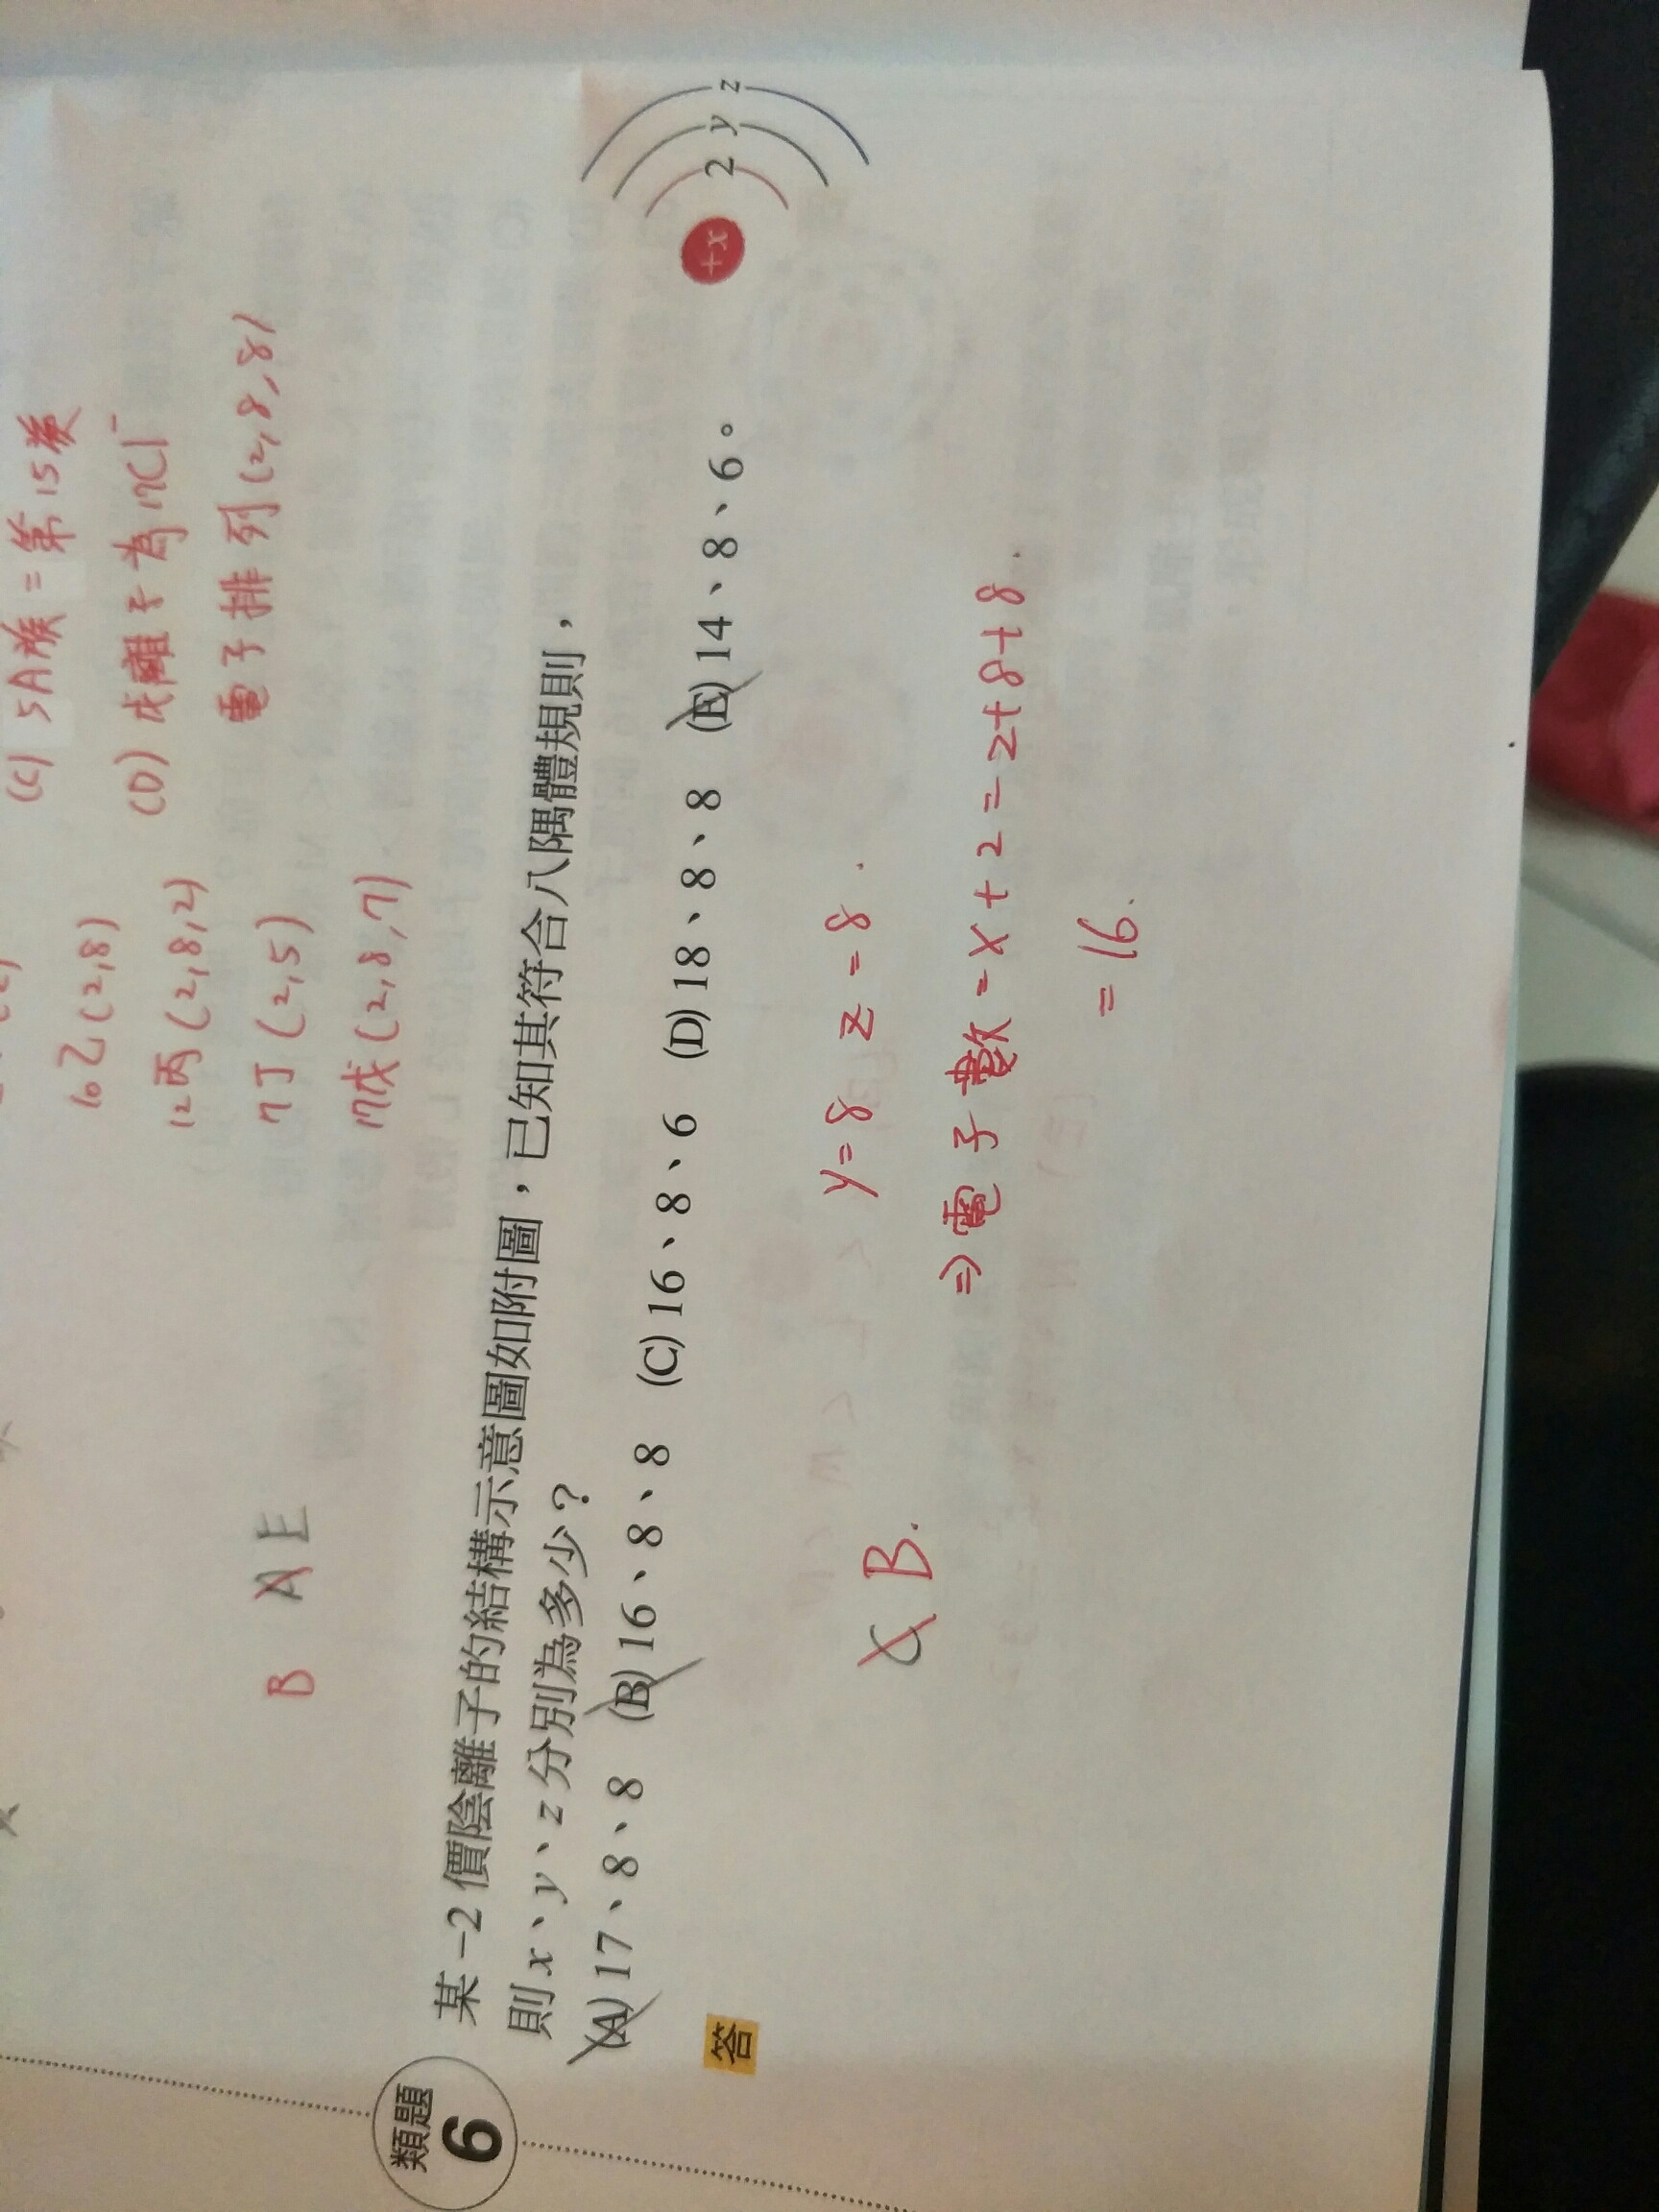 (C) 5A族=第15族
(D) 戊離子為17Cl⁻
電子排列(2,8,8)
10乙(2,8)
12丙(2,8,2)
7丁(2,5)
17戊(2,8,7)
B A E
類題
6
某 −2 價陰離子的結構示意圖如附圖，已知其符合八隅體規則，
則 x、y、z 分別為多少？
(A) 17、8、8 (B) 16、8、8 (C) 16、8、6 (D) 18、8、8 (E) 14、8、6。
+x 2 y z
答
C B.
y=8 z=8.
⇒電子數=x+2=2+8+8.
=16.